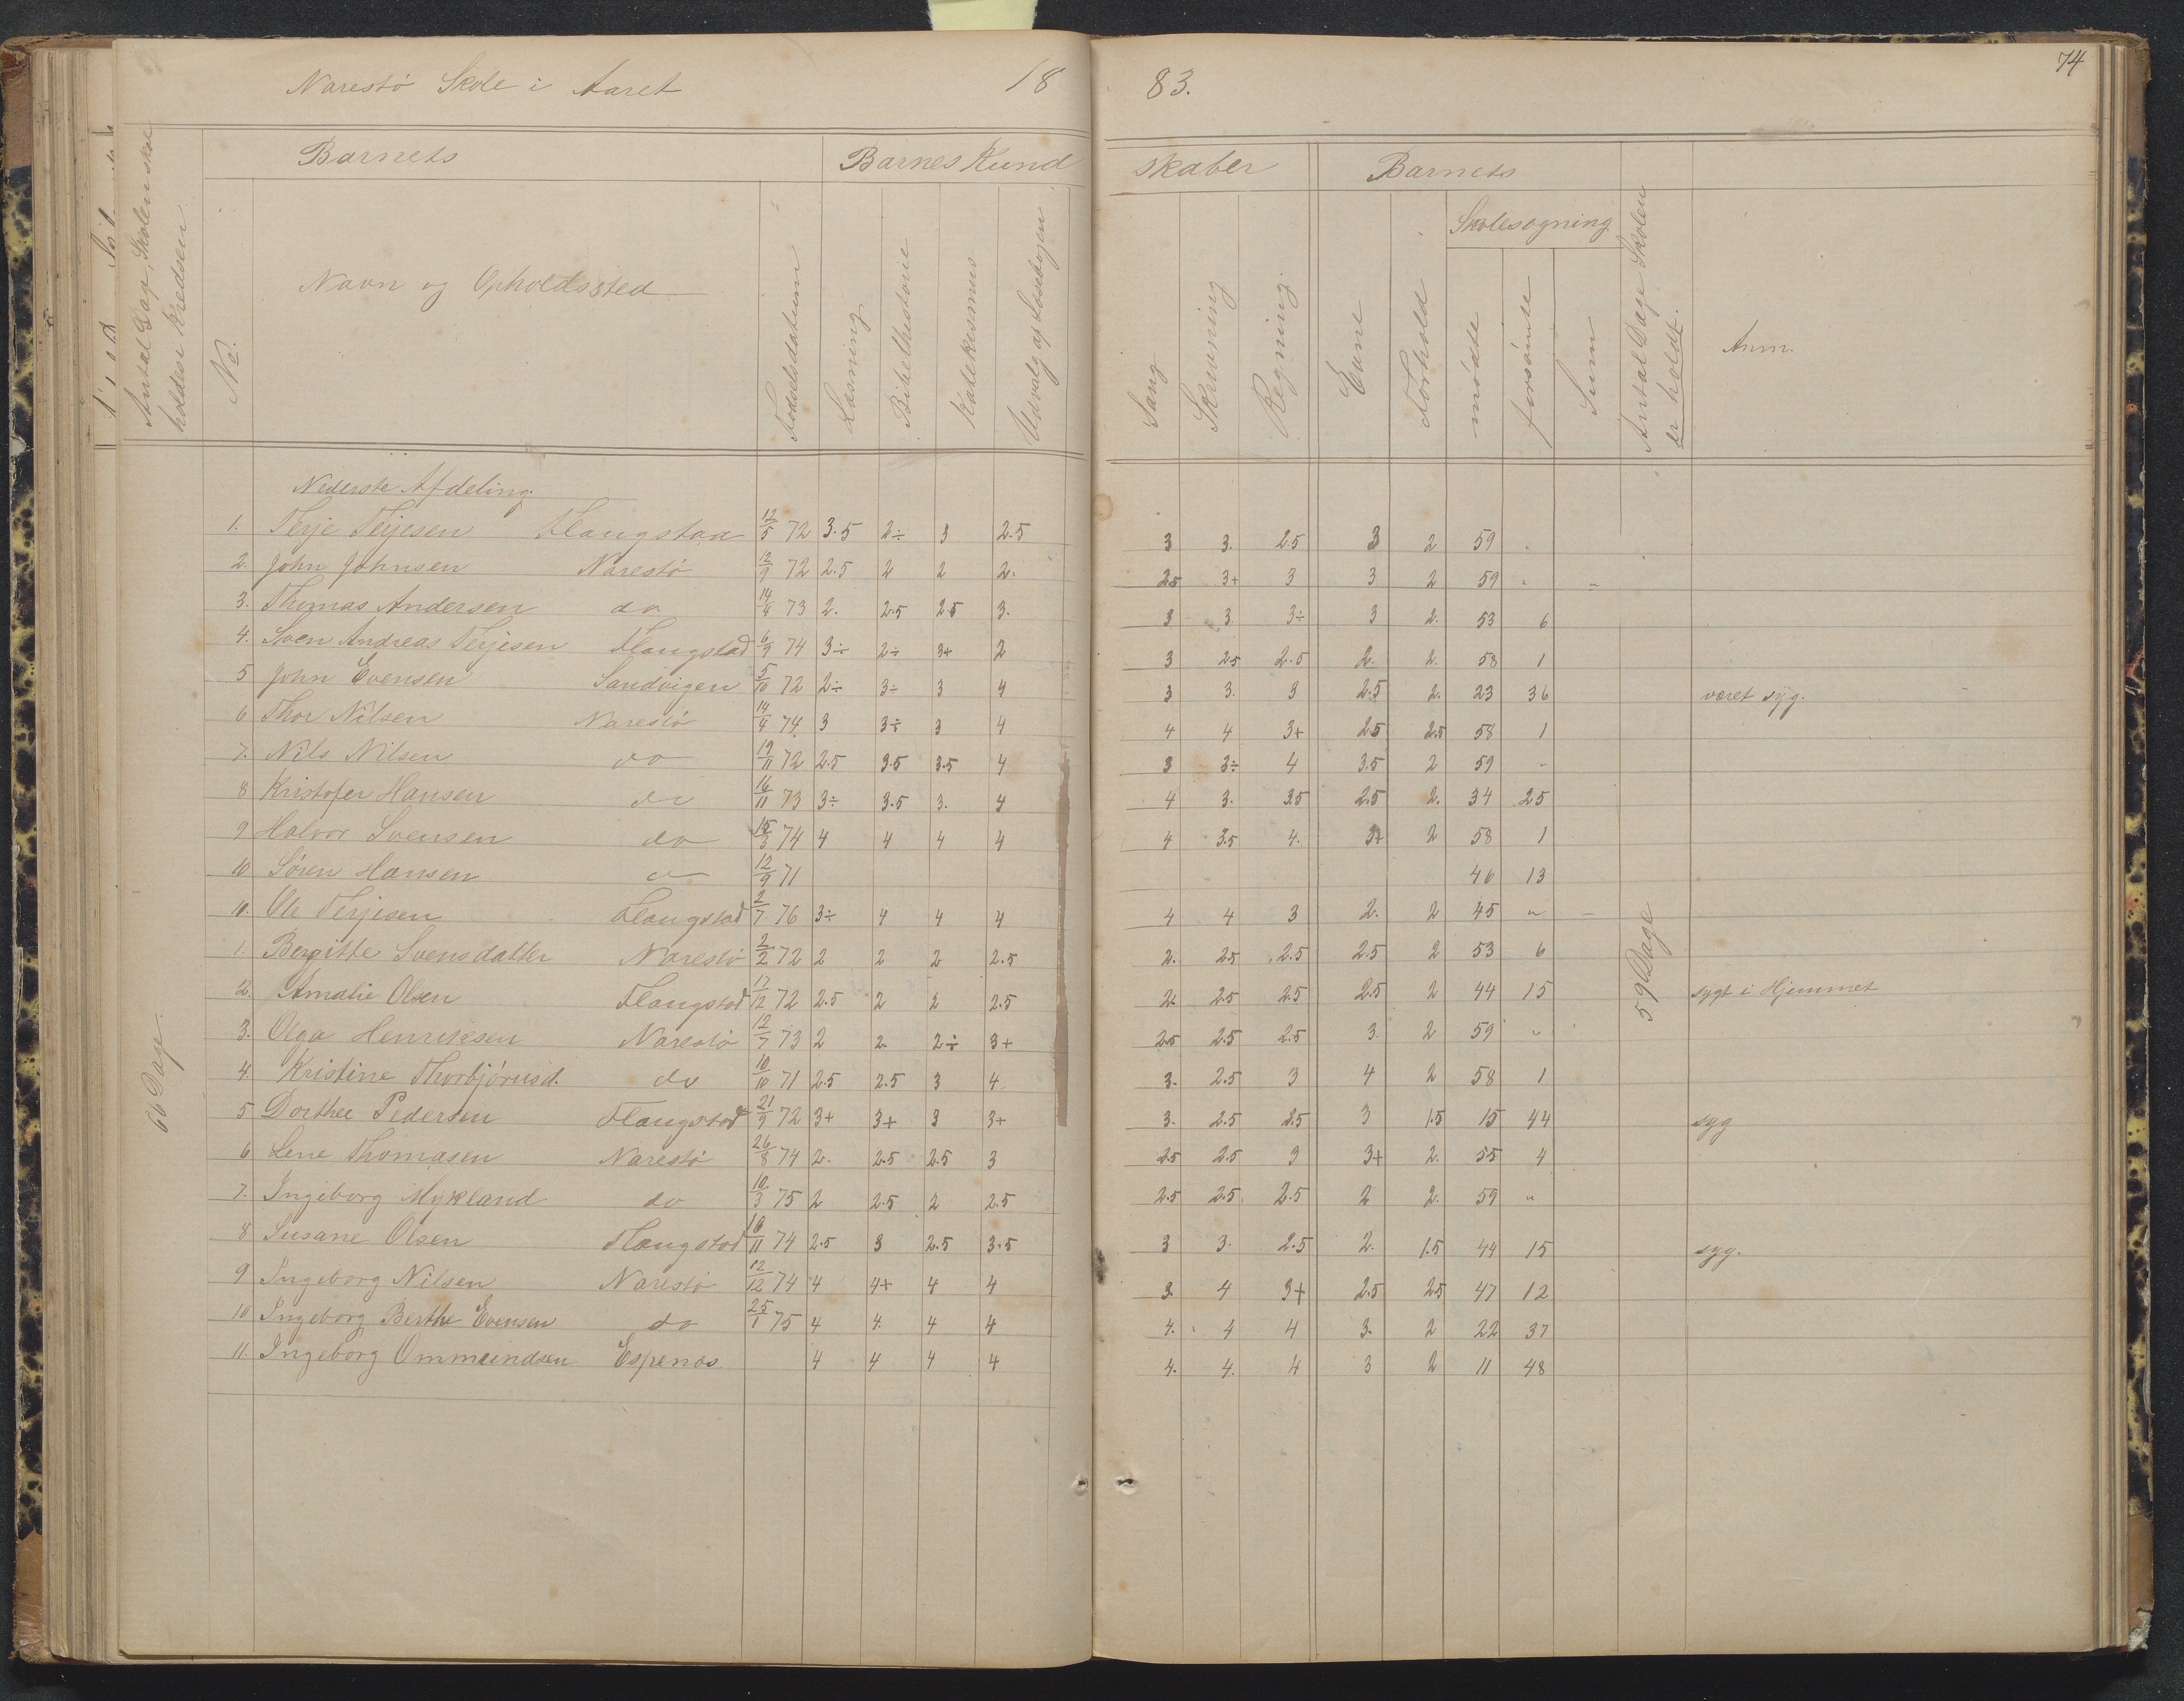 Narestö Skole i Aaret 18 83. 74
Barnets Barnes Kund skaber Barnets
Antal Dage, Skolen skal holdes i Kredsen
No. Navn og Opholdssted Födselsdatum Læsning Bibelhistorie Katekismus Udvalg af Læsebogen Sang Skrivning Regning Evne Forhold Skolesøgning mödte forsömte Sum Antal Dage Skolen er holdt. Anm.
Nederste Afdeling.
1. Terje Terjesen Flangstaa 12/5 72 3.5 2÷ 3 2.5 3 3. 2.5 3 2 59
2. John Johnsen Narestö 12/9 72 2.5 2 2 2. 2.5 3+ 3 3 2 59 "
3. Thomas Andersen do 14/4 73 2. 2.5 2.5 3. 3 3. 3÷ 3 2. 53 6
4. Sven Andreas Terjesen Flangstad 6/9 74 3÷ 2÷ 3+ 2 3 2.5 2.5 2. 2. 58 1
5 John Evensen Sandvigen 5/10 72 2÷ 3÷ 3 4 3 3. 3 2.5 2. 23 36 været syg.
6 Thor Nilsen Narestö 14/4 74. 3 3÷ 3 4 4 4 3+ 2.5 2.5 58 1
7. Nils Nilsen do 19/11 72 2.5 3.5 3.5 4 3 3÷ 4 3.5 2 59 "
8 Kristofer Hansen do 16/11 73 3÷ 3.5 3. 4 4 3. 3.5 2.5 2. 34 25
9 Halvor Svensen do 15/3 74 4 4 4 4 4 3.5 4. 3+ 2 58 1
10 Sören Hansen do 12/9 71 46 13
10. Ole Terjesen Flangstad 2/7 76 3÷ 4 4 4 4 4 3 2. 2 45 "
1. Bergitte Svensdatter Narestö 2/2 72 2 2 2 2.5 2. 2.5 2.5 2.5 2 53 6
2. Amalie Olsen Flangstad 17/12 72 2.5 2 2 2.5 2. 2.5 2.5 2.5 2 44 15 sygt i Hjemmet
3. Olga Henriksen Narestö 12/7 73 2 2. 2÷ 3+ 2.5 2.5 2.5 3. 2 59 "
4. Kristine Thorbjörnsd. do 10/10 71 2.5 2.5 3 4 3. 2.5 3 4 2 58 1
5 Dorthee Pedersen Flangstad 21/9 72 3+ 3+ 3 3+ 3. 2.5 2.5 3 1.5 15 44 syg
6 Lene Thomasen Narestö 26/8 74 2. 2.5 2.5 3 2.5 2.5 3 3+ 2. 55 4
7. Ingeborg Mykland do 10/3 75 2 2.5 2 2.5 2.5 2.5. 2.5 2 2. 59 "
8 Susane Olsen Flangstad 16/11 74 2.5 3 2.5 3.5 3 3. 2.5 2. 1.5 44 15 syg.
9 Ingeborg Nilsen Narestö 12/12 74 4 4+ 4 4 3. 4 3+ 2.5 2.5 47 12
10 Ingeborg Berthe Evensen do 25/1 75 4 4. 4 4 4. 4 4 3. 2 22 37
11. Ingeborg Ommundsen Espenes. 4 4 4 4 4. 4. 4 3 2 11 48
66 Dage.
59 Dage